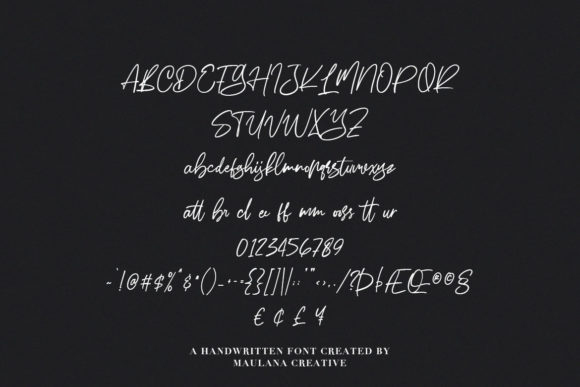 ABCDEFGHIJKLMNOPQR
STUVWXYZ
abcdefghijklmnopqrstuvwxyz
att br cl ee ff mm oss tt ur
0123456789
~`!@#$%^&*()_+-={}[]|\:;'"<>,./?ÞþÆŒ®©§
€ ¢ £ ¥
A HANDWRITTEN FONT CREATED BY
MAULANA CREATIVE